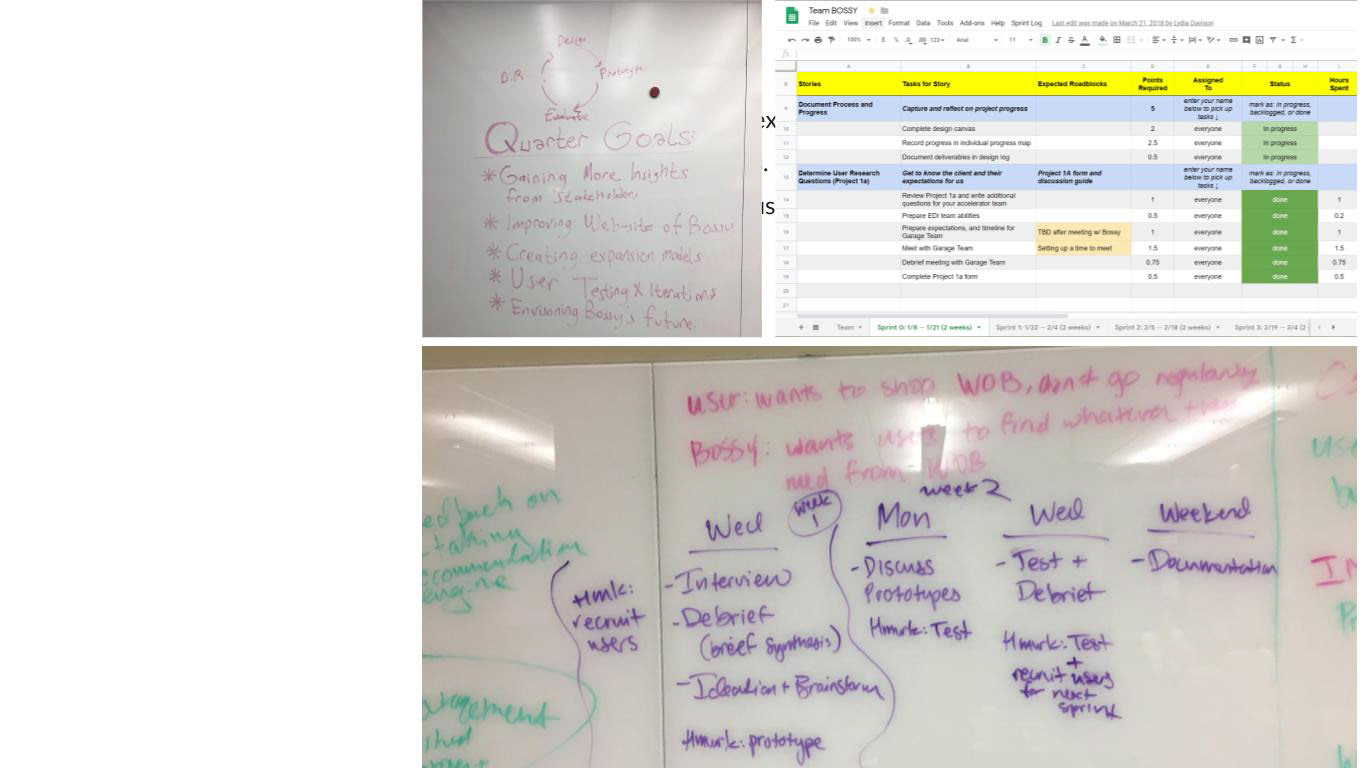 Design
D.R
Prototype
Evaluate
Quarter Goals:
* Gaining More Insights
from Stakeholders
* Improving Web-site of Bossy
* Creating expansion models
* User Testing X Iterations
* Envisoning Bossy's future.
ex
.
us
Team BOSSY
File Edit View Insert Format Data Tools Add-ons Help Sprint Log Last edit was made on March 21, 2018 by Lydia Davison
100% $ % .0 .00 123 Arial 11 B I S A
fx
A B C D E F G H I
8 Stories Tasks for Story Expected Roadblocks Points Required Assigned To Status Hours Spent
9 Document Process and Progress Capture and reflect on project progress 5 enter your name below to pick up tasks ↓ mark as: in progress, backlogged, or done
10 Complete design canvas 2 everyone In progress
11 Record progress in individual progress map 2.5 everyone In progress
12 Document deliverables in design log 0.5 everyone In progress
13 Determine User Research Questions (Project 1a) Get to know the client and their expectations for us Project 1A form and discussion guide enter your name below to pick up tasks ↓ mark as: in progress, backlogged, or done
14 Review Project 1a and write additional questions for your accelerator team 1 everyone done 1
15 Prepare EDI team abilities 0.5 everyone done 0.2
16 Prepare expectations, and timeline for Garage Team TBD after meeting w/ Bossy 1 everyone done 1
17 Meet with Garage Team Setting up a time to meet 1.5 everyone done 1.5
18 Debrief meeting with Garage Team 0.75 everyone done 0.75
19 Complete Project 1a form 0.5 everyone done 0.5
20
21
Team Sprint 0: 1/8 -- 1/21 (2 weeks) Sprint 1: 1/22 -- 2/4 (2 weeks) Sprint 2: 2/5 -- 2/18 (2 weeks) Sprint 3: 2/19 -- 3/4 (2
user: wants to shop WOB, don't go regularly
BOSSY: wants users to find whatever they
need from WOB
edback on
taking
commendation
engine
Hmk:
recruit
users
Wed
week
1
- Interview
- Debrief
(brief synthesis)
- Ideation + Brainstorm
Hmwrk: prototype
week 2
Mon
- Discuss
Prototypes
Hmwrk: Test
Wed
- Test +
Debrief
Hmwrk: Test
+
recruit users
for next
sprint
Weekend
- Documentation